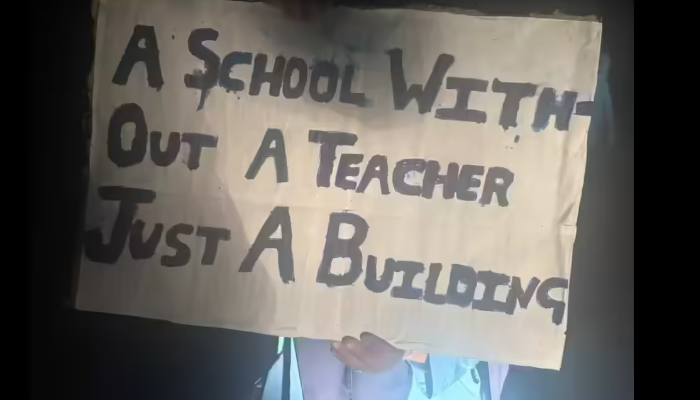 A SCHOOL WITH-
OUT A TEACHER
JUST A BUILDING